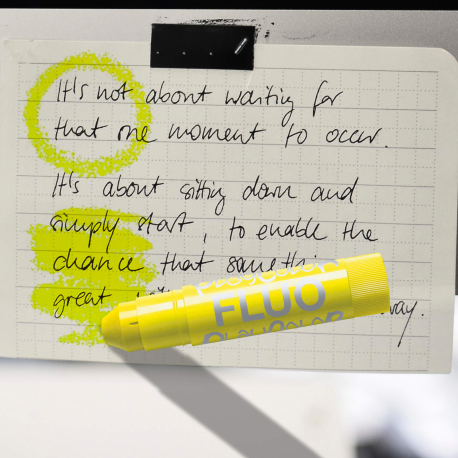 It's not about waiting for
that one moment to occur.
It's about sitting down and
simply start, to enable the
chance that something
great way.
PLAYCOLOR
FLUO
PLAYCOLOR